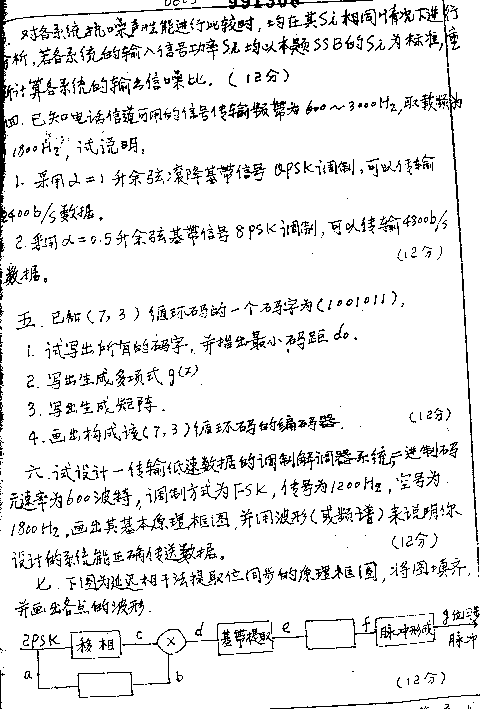 991308
对各系统抗噪声性能进行比较时，均在其Si相同情况下进行
分析，若各系统的输入信号功率Si均以本题SSB的Si为标准，重
新计算各系统的输出信噪比。(12分)
四. 已知电话信道可用的信号传输频带为600~3000Hz,取载频为
1800Hz，试说明：
1. 采用α=1升余弦滚降基带信号QPSK调制，可以传输
2400b/s数据。
2. 采用α=0.5升余弦基带信号8PSK调制，可以传输4800b/s
数据。 (12分)
五. 已知(7,3)循环码的一个码字为(1001011)，
1. 试写出所有的码字，并指出最小码距do.
2. 写出生成多项式g(x)
3. 写出生成矩阵.
4. 画出构成该(7,3)循环码的编码器. (12分)
六. 试设计一传输低速数据的调制解调器系统，二进制码
元速率为600波特，调制方式为FSK，传号为1200Hz，空号为
1800Hz，画出其基本原理框图，并用波形(或频谱)来说明你
设计的系统能正确传送数据。 (12分)
七. 下图为延迟相干法提取位同步的原理框图，将图填齐，
并画出各点的波形.
2PSK 移相 c × d 基带提取 e f 脉冲形成 g位同步
脉冲
a b
(12分)